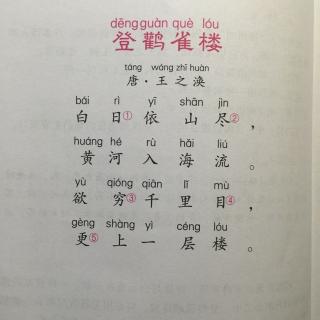 dēng guàn què lóu
登鹳雀楼
táng wáng zhī huàn
唐·王之涣
bái rì yī shān jìn
白日①依山尽②，
huáng hé rù hǎi liú
黄河入海流。
yù qióng qiān lǐ mù
欲穷③千里目④，
gèng shàng yì céng lóu
更⑤上一层楼。